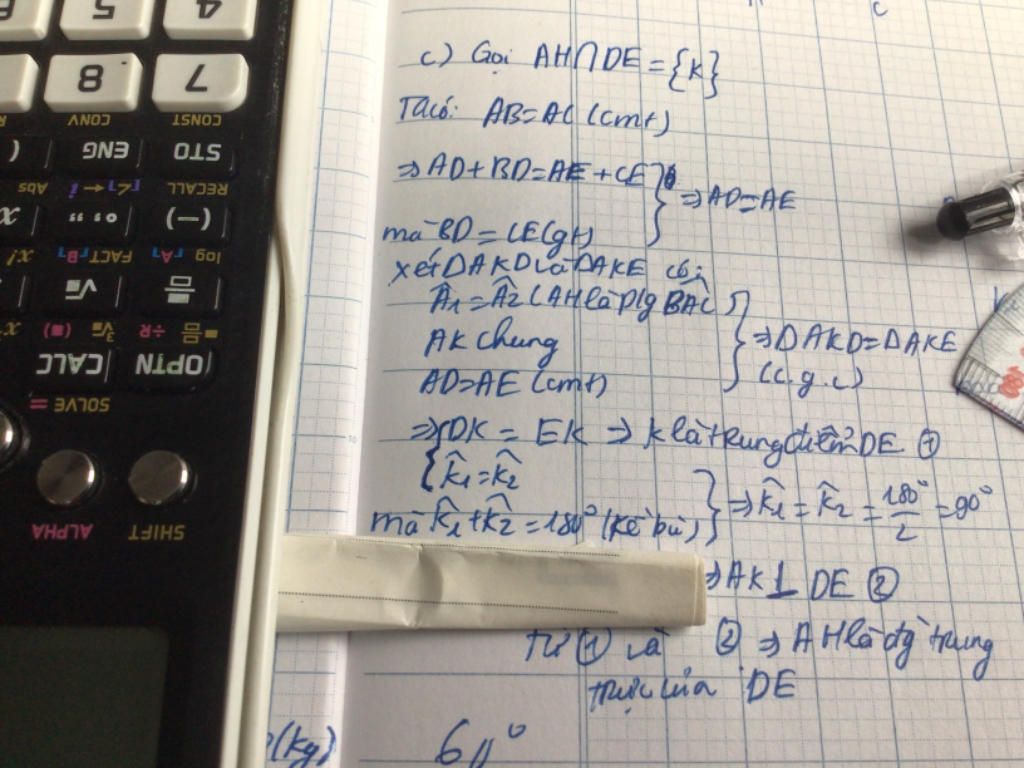 c) Gọi AH∩DE = {K}
Ta có: AB=AC (cmt)
⇒ AD+BD=AE+CE
⇒ AD=AE
mà BD=CE(gt)
xét ΔAKD và ΔAKE có:
Â1 = Â2 (AH là p/g BÂC
AK chung
AD=AE (cmt)
⇒ ΔAKD=ΔAKE
(c.g.c)
⇒ DK = EK ⇒ K là trung điểm DE ①
K̂1 = K̂2
mà K̂1+K̂2=180° (kề bù)
⇒ K̂1 = K̂2 = 180°/2 = 90°
⇒ AK⊥DE ②
Từ ① và ② ⇒ AH là đg trung
trực của DE
(kg)
4
5
6
7
8
CONST
CONV
STO
ENG
(
RECALL
Abs
(−)
° ’ ”
x
log
FACT
B
x!
√
OPTN
CALC
SOLVE =
SHIFT
ALPHA